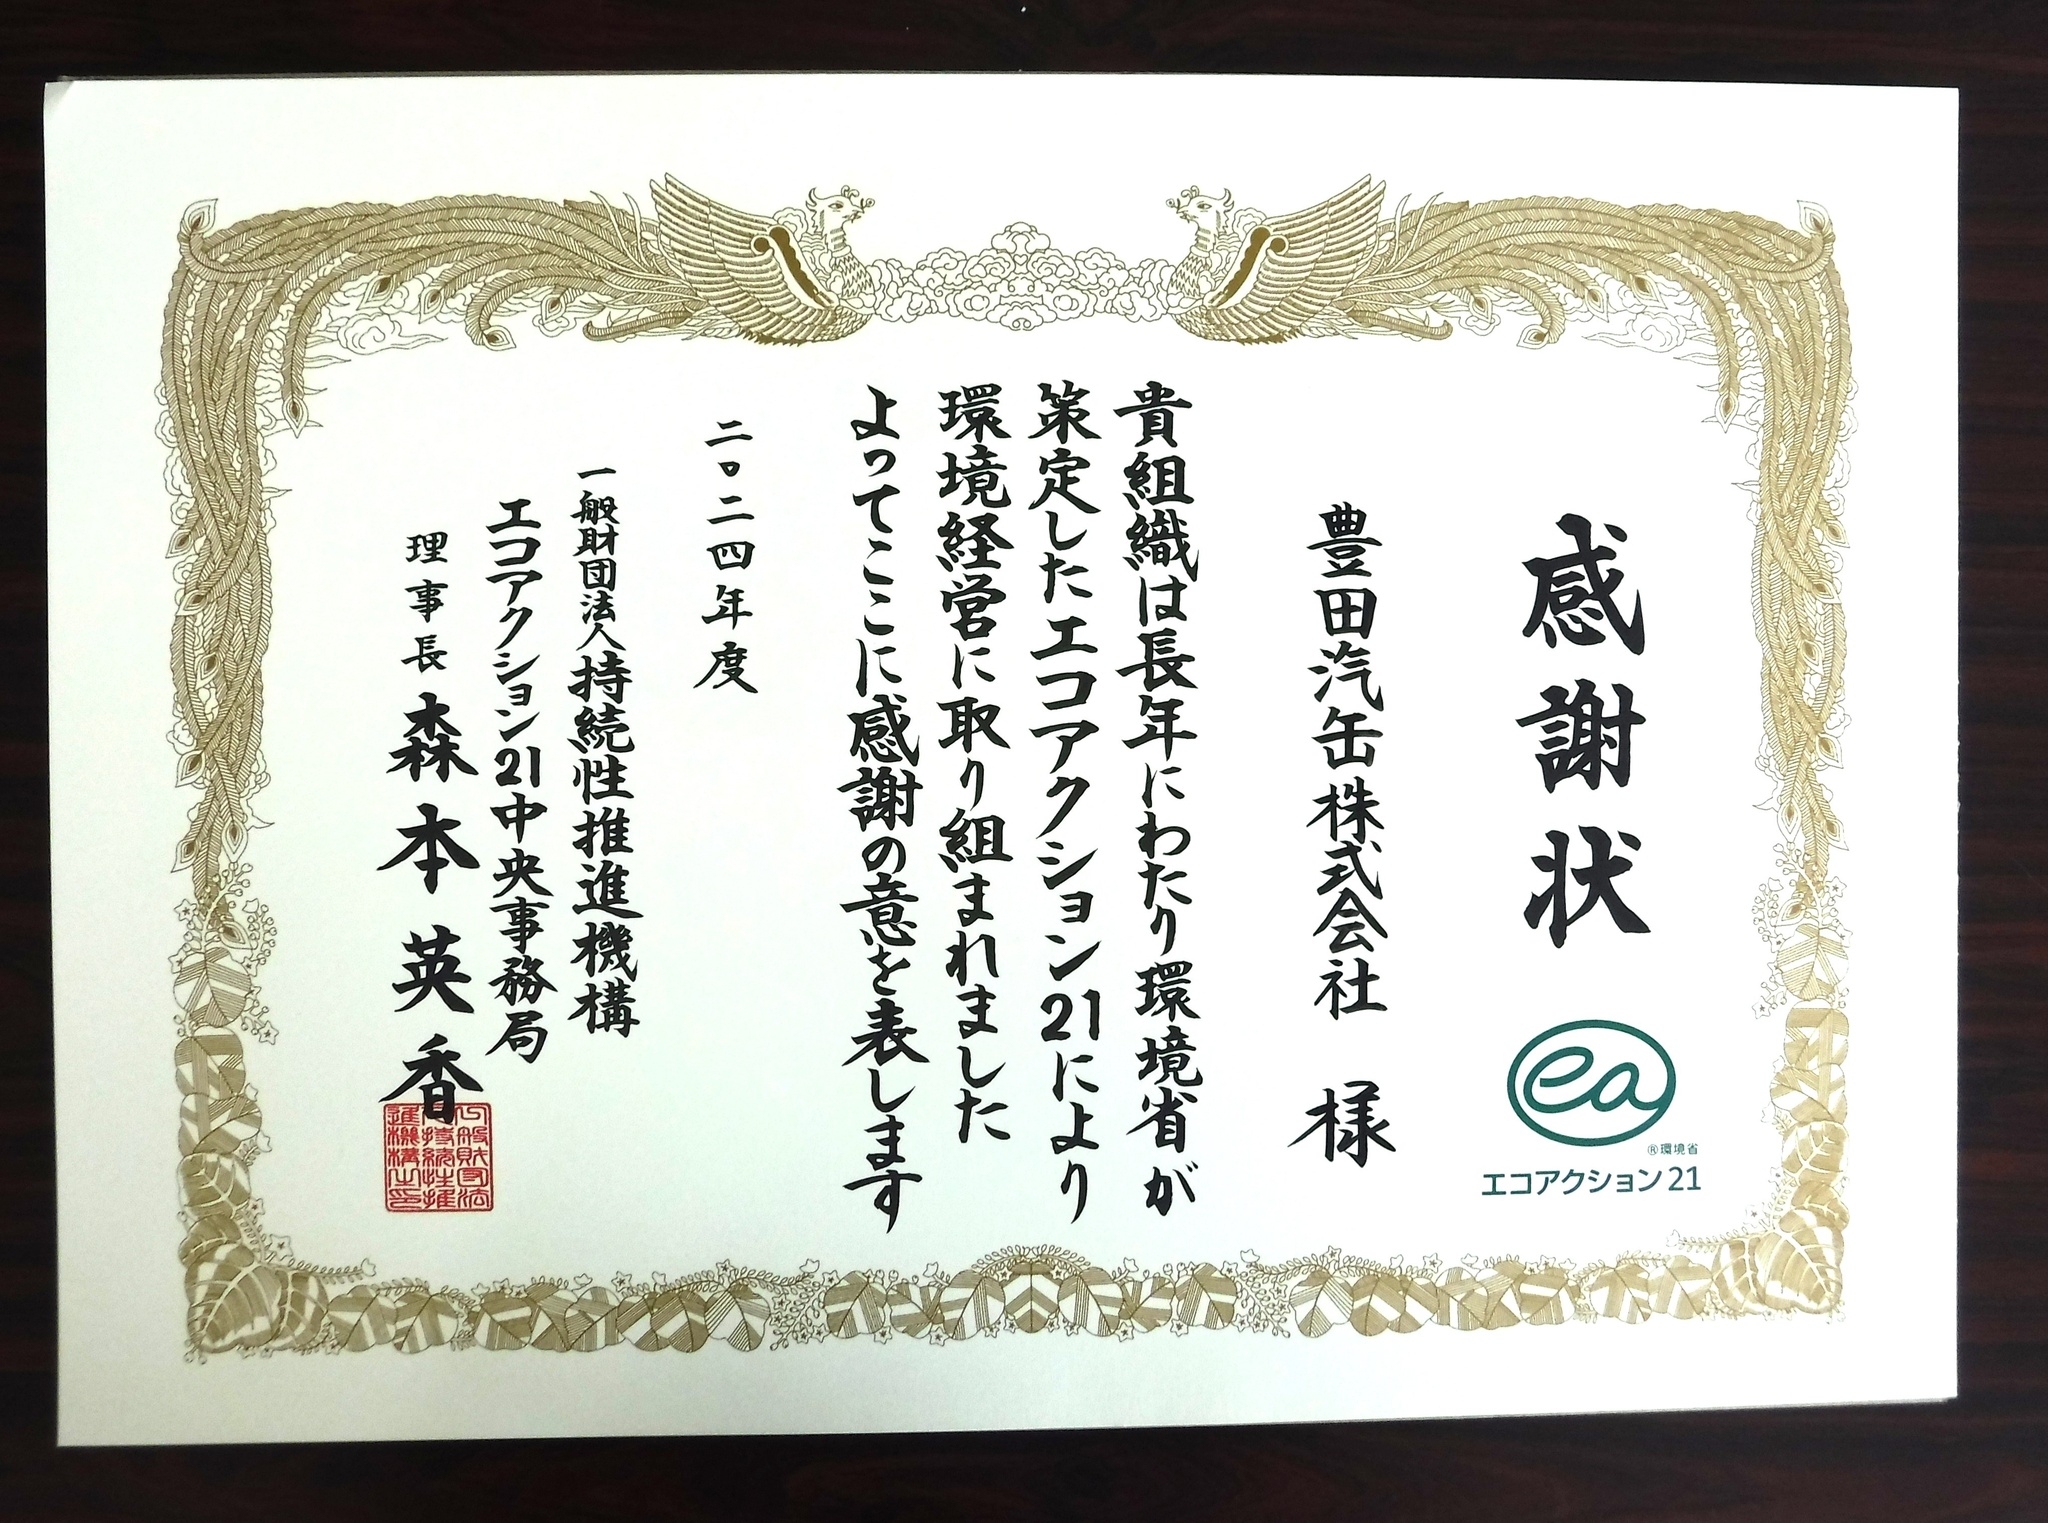 感謝状
ea
®環境省
エコアクション21
豊田汽缶株式会社 様
貴組織は長年にわたり環境省が
策定したエコアクション21により
環境経営に取り組まれました
よってここに感謝の意を表します
二〇二四年度
一般財団法人持続性推進機構
エコアクション21中央事務局
理事長 森本英香
一般財団法
人持続性推
進機構之印